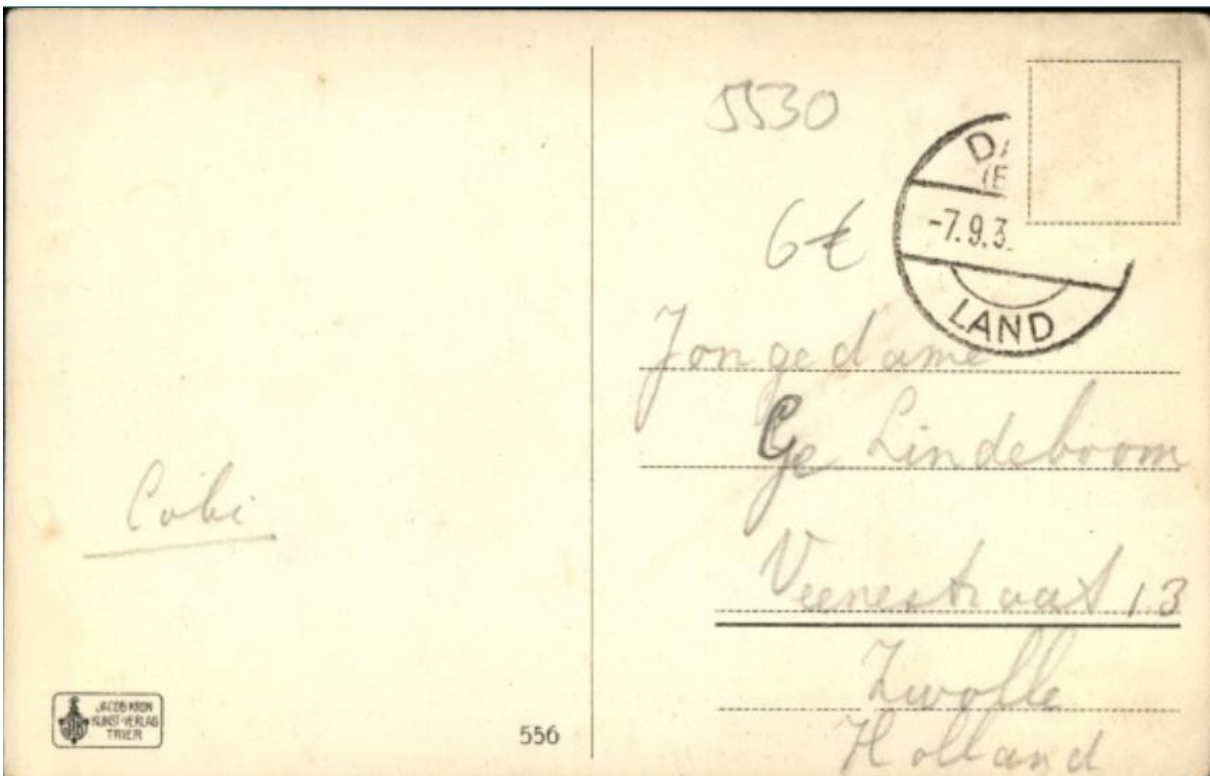 Cobi
JACOB KRON
KUNST-VERLAG
TRIER
556
5530
6€
-7.9.3
LAND
Jongedame
Ge Lindeboom
Veenestraat 13
Zwolle
Holland